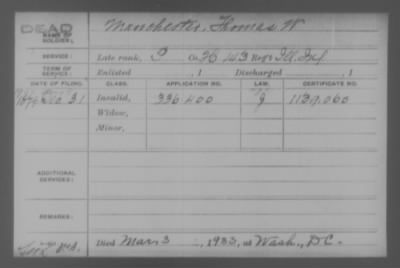 DEAD
NAME OF SOLDIER: Manchester, Thomas W
SERVICE: Late rank, P Co. H 143 Reg't Ill. Inf.
TERM OF SERVICE: Enlisted , 1 Discharged , 1
DATE OF FILING. CLASS. APPLICATION NO. LAW. CERTIFICATE NO.
1879 Dec 31 Invalid, 336 400 1129,060
Widow,
Minor,
ADDITIONAL SERVICES:
REMARKS:
Died Mar. 3, 1933, at Wash., D.C.